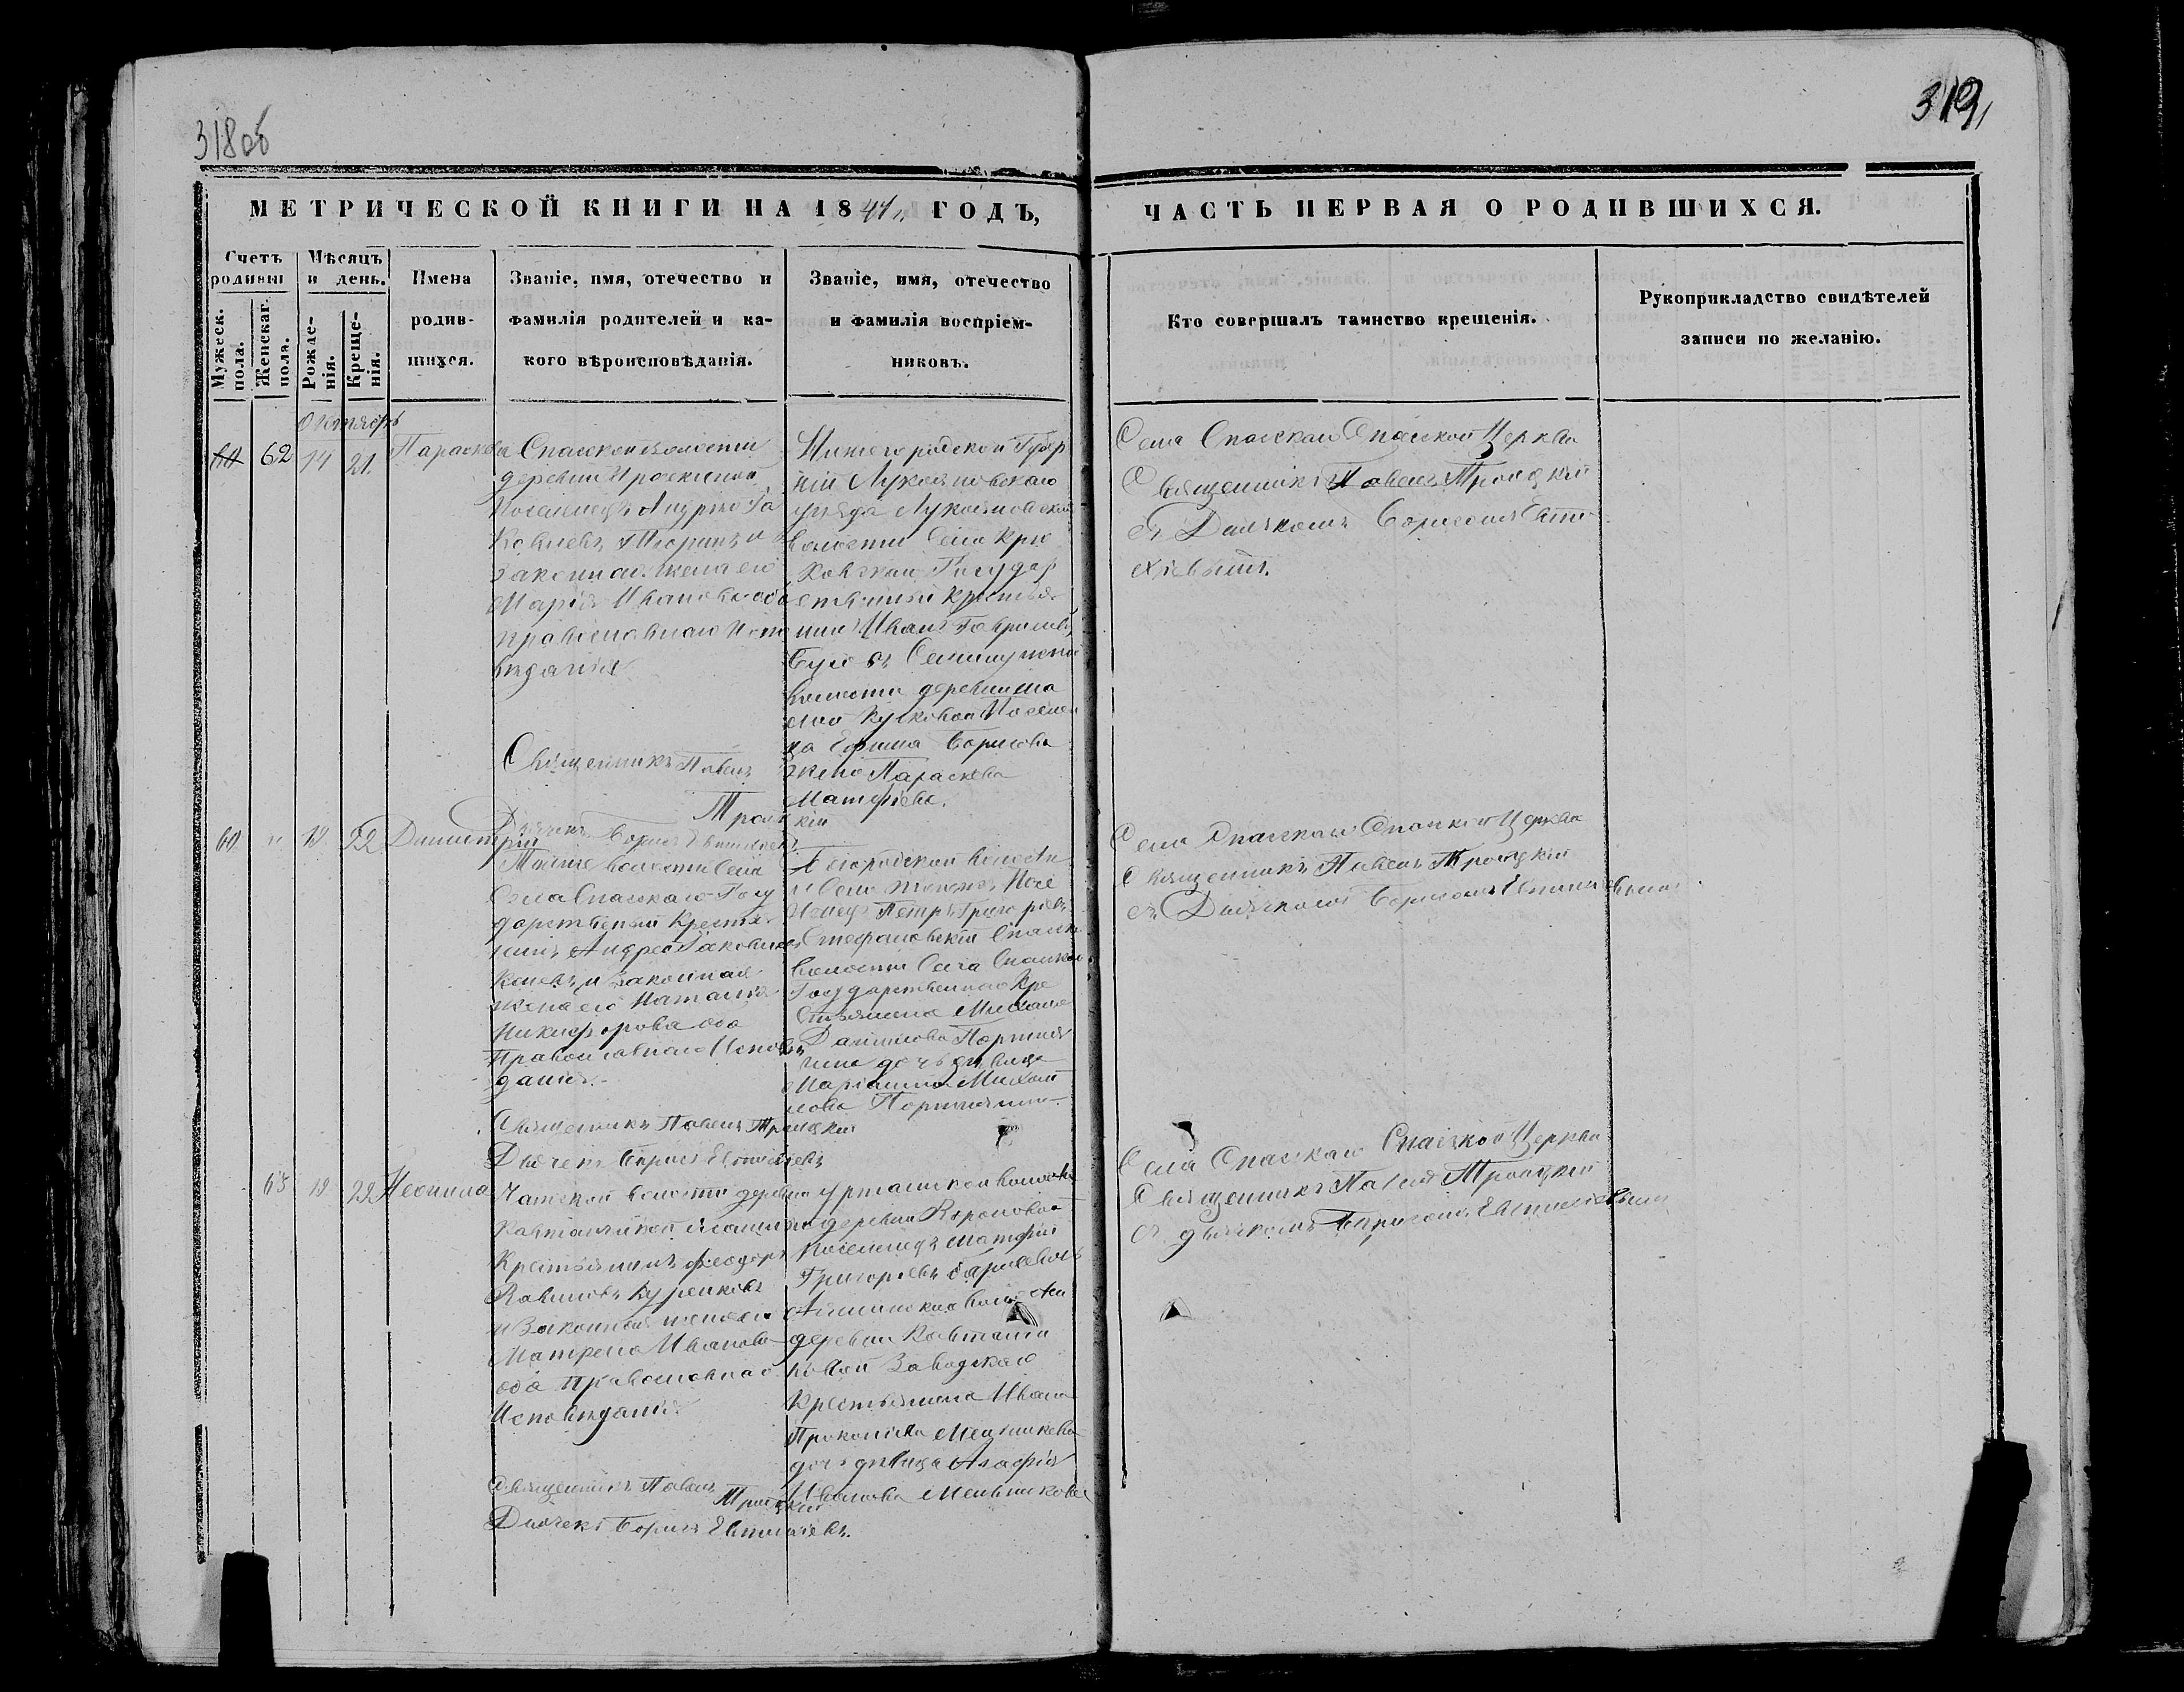 318об
319
МЕТРИЧЕСКОЙ КНИГИ НА 1841 ГОДЪ,
ЧАСТЬ ПЕРВАЯ О РОДИВШИХСЯ.
Счетъ родивш
Мѣсяцъ и день.
Мужеск. пола.
Женскаг. пола.
Рожденія.
Крещенія.
Имена
родив-
шихся.
Званіе, имя, отечество и
фамилія родителей и ка-
кого вѣроисповѣданія.
Званіе, имя, отечество
и фамилія воспріем-
никовъ.
Кто совершалъ таинство крещенія.
Рукоприкладство свидѣтелей
записи по желанію.
Октябрь
62 14 21 Параскева
Спасской волости
деревни
Поселенецъ Андрей Яковлевъ
и
законная жена его
Марія Иванова оба
православнаго испо
вѣданія
Священникъ Павелъ
Троицкій
Дьячекъ Борисъ Евтихіевъ
Нижегородской Губер
ніи Лукояновскаго
уѣзда Лукояновской
волости села Крю
ковскаго Государ
ственный крестья
нинъ Иванъ Гавриловъ
волости деревни
Поселен
ца Ефима Борисова
жена Параскева
Матфіева.
Села Спасскаго Спасской Церкви
Священникъ Павелъ Троицкій
съ Дьячкомъ Борисомъ Евти
хіевымъ.
60 " 18 22 Димитрій
Тойже волости Села
Села Спасскаго Госу
дарственный Крестья
нинъ Андрей Яковлевъ
и законная
жена его Наталія
Никифорова оба
Православнаго Исповѣ
данія.
Священникъ Павелъ Троицкій
Дьячекъ Борисъ Евтихіевъ
Богородской волости
и Села тогоже Посе
ленецъ Петръ Григорьевъ
Стефановскій Спасской
волости Села Спасскаго
Государственнаго Кре
стьянина Михаила
Данилова Портня
гина дочь дѣвица
Маріанна Михай
лова Портнягина.
Села Спасскаго Спасской Церкви
Священникъ Павелъ Троицкій
съ Дьячкомъ Борисомъ Евтихіевымъ.
63 19 22 Неонила
Чатской волости деревни
Крестьянинъ Феодоръ
и Законная жена его
Матрена Иванова
оба Православнаго
Исповѣданія.
Священникъ Павелъ
Троицкій
Дьячекъ Борисъ Евтихіевъ.
Уртамской волости
деревни Вороновой
Поселенецъ Матфій
Григорьевъ
волости
деревни
Заводскаго
Крестьянина Ивана
Прокопьева Мельникова
дочь дѣвица Агафія
Иванова Мельникова
Села Спасскаго Спасской Церкви
Священникъ Павелъ Троицкій
съ дьячкомъ Борисомъ Евтихіевымъ